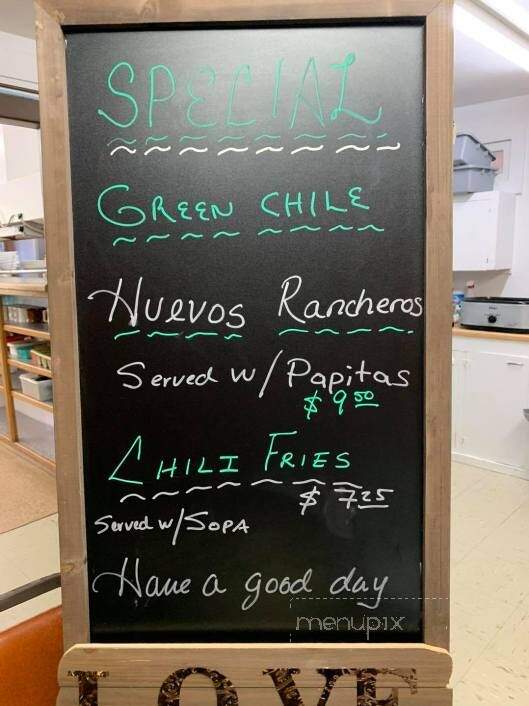 SPECIAL
GREEN CHILE
Huevos Rancheros
Served w/ Papitas
$ 9 50
CHILI FRIES
$ 7.25
Served w/ SOPA
Have a good day
menupix
LOVE